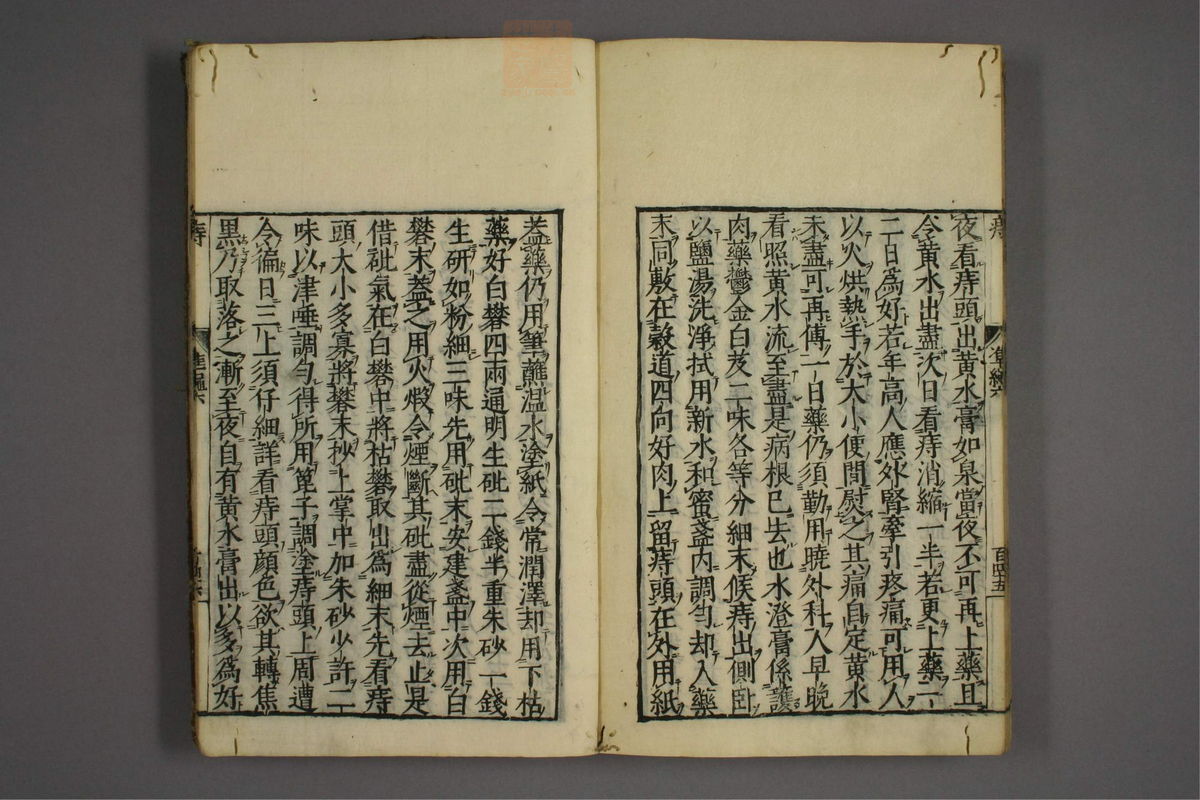 夜看痔頭出黃水膏如泉當夜不可再上藥且
令黃水出盡次日看痔消縮一半若更上藥一
二日爲好若年高人應外腎牽引疼痛可用人
以火烘熱手於大小便間熨之其痛自定黃水
未盡可再傅一日藥仍須勤用曉外科人早晚
看照黃水流至盡是病根已去也水澄膏係護
肉藥鬱金白芨二味各等分細末候痔出側卧
以鹽湯洗淨拭用新水和蜜盞内調勻却入藥
末同敷在穀道四向好肉上留痔頭在外用紙
蓋藥仍用筆蘸温水塗紙令常潤澤却用下枯
藥好白礬四兩通明生砒二錢半重朱砂一錢
生研如粉細三味先用砒末安建盞中次用白
礬末蓋之用火煅令煙斷其砒盡從煙去止是
借砒氣在白礬中將枯礬取出爲細末先看痔
頭大小多寡將礬末抄上掌中加朱砂少許二
味以津唾調勻得所用篦子調塗痔頭上周遭
令徧日三上須仔細詳看痔頭顔色欲其轉焦
黑乃取落之漸至夜自有黃水膏出以多爲好